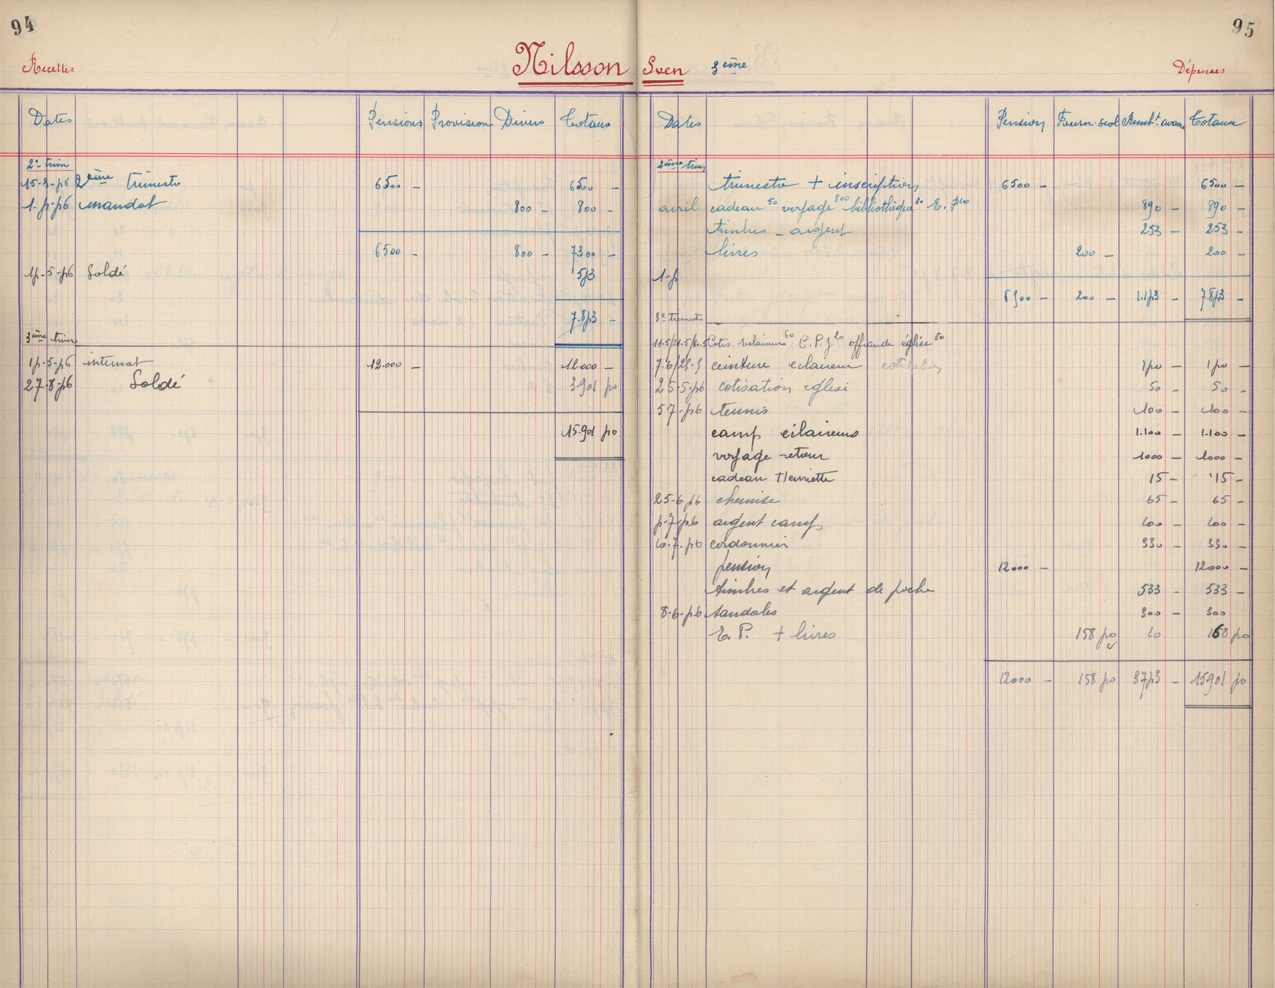 94
Recettes
Nilsson
Dates Pensions Provision Divers Totaux
2e trim
2ème trimestre 6500 - 6500 -
mandat 800 - 800 -
6500 - 800 - 7300 -
Soldé 573
7.873
3ème trim
internat 12.000 - 12.000 -
27-8-56 Soldé 3.901 50
15.901 50
95
Sven 3ème
Dépenses
Dates Pension Fourn. scol Remb.t avan. Totaux
2ème trim
trimestre + inscription 6500 - 6500 -
avril cadeau 50 voyage 800 bibliothèque
890 - 890 -
timbres - argent 253 - 253 -
livres 200 - 200 -
6500 - 200 - 7873 -
3e trimestre
offrande église 50
ceinture eclaireur cotisation
25-5-56 cotisation eglise 50 - 50 -
5-7-56 tennis 100 - 100 -
camp éclaireurs 1.100 - 1.100 -
voyage retour 1000 - 1000 -
cadeau Henriette 15 - 15 -
25-6-56 chemise 65 - 65 -
argent camp
cordonnier 330 - 330 -
pension 12000 - 12000 -
timbres et argent de poche 533 - 533 -
8-6-56 sandales 300 - 300
E.P. + livres 158 50
12000 - 158 50 15901 50